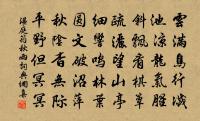 雲滿鳥行滅
池涼龍氣腥
斜飄看棋簟
疏灑望山亭
細響鳴林葉
圓文破沼萍
秋陰杳無際
平野但冥冥
溫庭筠秋雨詞典網集